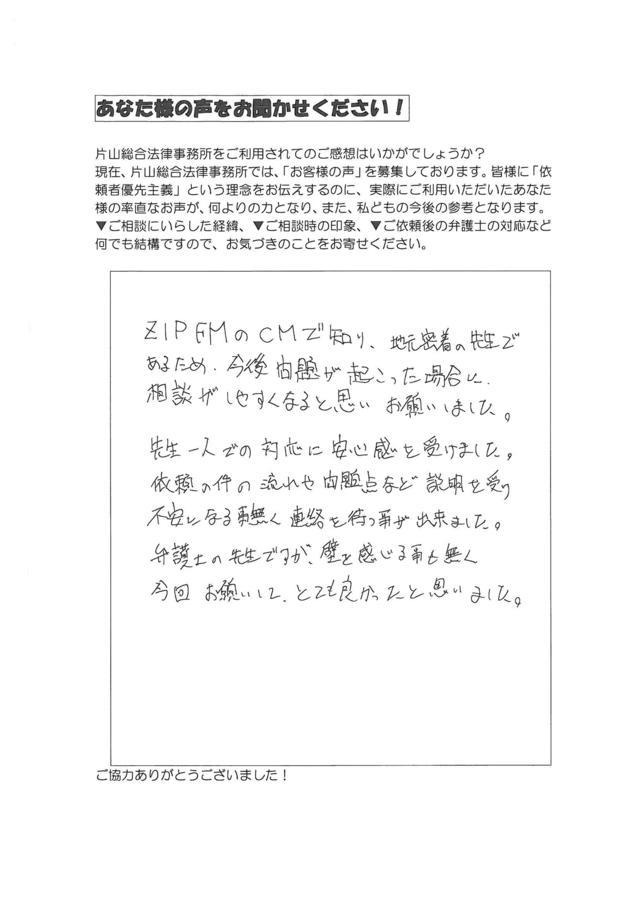 あなた様の声をお聞かせください！
片山総合法律事務所をご利用されてのご感想はいかがでしょうか？
現在、片山総合法律事務所では、「お客様の声」を募集しております。皆様に「依
頼者優先主義」という理念をお伝えするのに、実際にご利用いただいたあなた
様の率直なお声が、何よりの力となり、また、私どもの今後の参考となります。
▼ご相談にいらした経緯、▼ご相談時の印象、▼ご依頼後の弁護士の対応など
何でも結構ですので、お気づきのことをお寄せください。
ZIP FMのCMで知り、地元密着の先生で
あるため、今後問題が起こった場合に、
相談がしやすくなると思いお願いしました。
先生一人での対応に安心感を受けました。
依頼の件の流れや問題点など説明を受け
不安になる事無く連絡を待つ事が出来ました。
弁護士の先生ですが、壁を感じる事も無く
今回お願いして、とても良かったと思いました。
ご協力ありがとうございました！